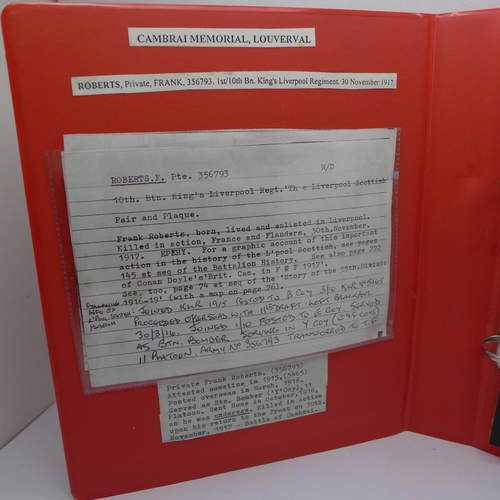 CAMBRAI MEMORIAL, LOUVERVAL
ROBERTS, Private, FRANK, 356793. 1st/10th Bn. King's Liverpool Regiment. 30 November 1917.
ROBERTS.F. Pte. 356793 N/D
10th. Btn. King's Liverpool Regt.'Th e Liverpool Scottish
Pair and Plaque.
Frank Roberts, born, lived and enlisted in Liverpool.
Killed in action, France and Flanders, 30th.November,
1917. EPEHY. For a graphic account of this important
action in the history of the L'pool Scottish, see pages
145 et seq of the Battalion History. See also page 272
of Conan Doyle's'Brit. Cam. in F & F 1917'.
See, too, page 74 et seq of the 'Story of the 55th.Divisio
1916-19' (with a map on page 26).
FOLLOWING
INFO EX
L'POOL SCOTTISH
MUSEUM
JOINED KLR 1915 POSTED TO B COY 3/10 KLR Nº5465
PROCEEDED OVERSEAS WITH 11th DRAFT
30/3/16. JOINED 1/10 POSTED TO COY SERVED
AS BTN. BOMBER SERVING IN Y COY
11 PLATOON. ARMY Nº 356793 TRANSFERRED TO T.F.
Private Frank Roberts, (356793)
Attested sometime in 1915.(5465)
Posted overseas in March, 1916.
Served as Btn. Bomber ('Y'Coy), 11
Platoon. Sent Home in October,1916,
as he was underage. Killed in action
upon his return to the Front on 30th.
November, 1917 - Battle of Cambrai.